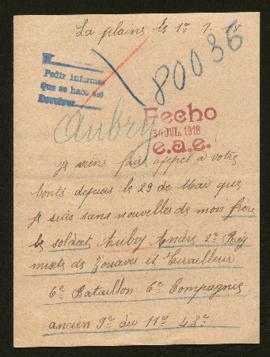 La plaine le 1er 7.
80036
Pedir informes
Que se hace así
Devolver
Aubry
Hecho
30 JUL. 1918
e.a.e.
je viens faire appel à votre
bonté depuis le 29 de Mai que
je suis sans nouvelles de mon frère
le soldat Aubry André 2e Reg
mixte de Zouaves et Tirailleur
6e Bataillon 6e Compagnie
ancien 9e du 11e